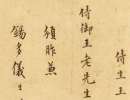 侍生王
侍御王老先生
頒胙兼
錫多儀生